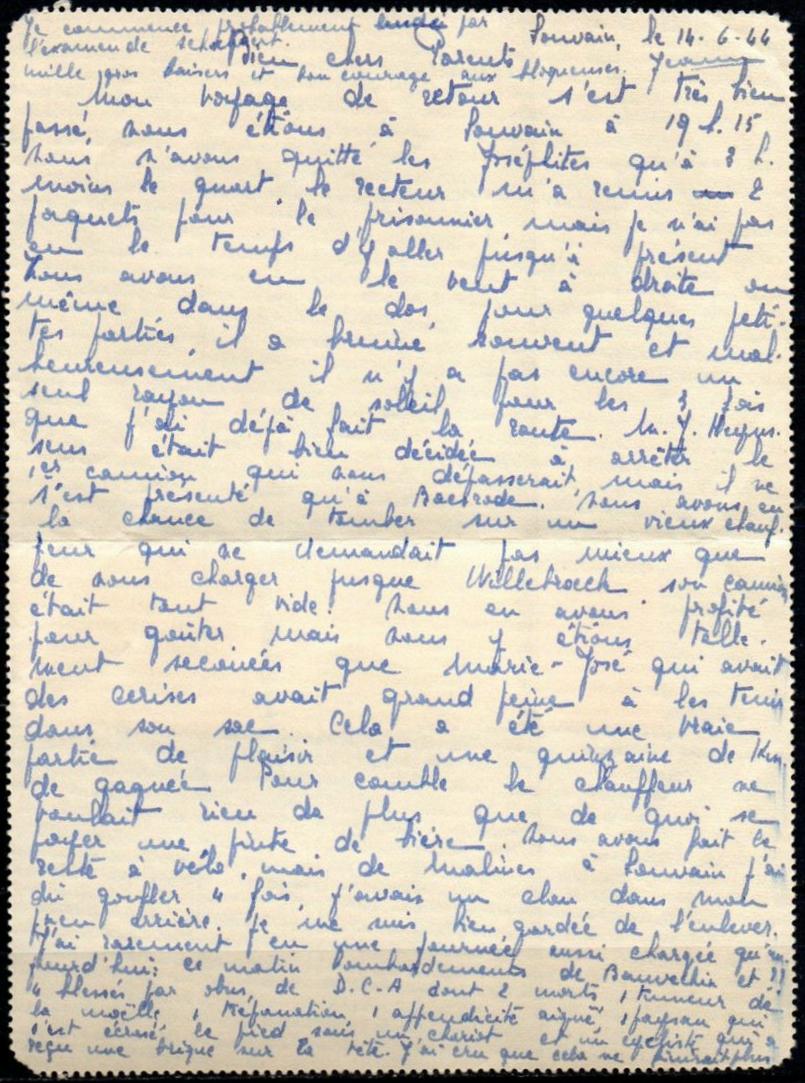 Je commence probablement lundi par
l'examen de
Louvain, le 14-6-44
Bien chers Parents
mille gros baisers et bon courage aux bloqueuses. Jeanne
Mon voyage de retour s'est très bien
passé, nous étions à Louvain à 19 h. 15
nous n'avons quitté les Joséphites qu'à 3 h.
moins le quart, le recteur m'a remis 2
paquets pour le prisonnier, mais je n'ai pas
eu le temps d'y aller jusqu'à présent
Nous avons eu le vent à droite ou
même dans le dos pour quelques peti-
tes parties, il a bruiné souvent et mal-
heureusement il n'y a pas encore un
seul rayon de soleil pour les 3 fois
que j'ai déjà fait la route. M. J.
sens était bien décidée à arrêter le
1er camion qui nous dépasserait, mais il ne
s'est présenté qu'à Baesrode. Nous avons eu
la chance de tomber sur un vieux chauf-
feur qui ne demandait pas mieux que
de nous charger jusque Willebroeck son camion
était tout vide. Nous en avons profité
pour goûter mais nous y étions telle-
ment secouées que Marie-José qui avait
des cerises avait grand peine à les tenir
dans son sac. Cela a été une vraie
partie de plaisir et une quinzaine de Km
de gagnée. Pour comble le chauffeur ne
voulait rien de plus que de quoi se
payer une pinte de bière. Nous avons fait le
reste à vélo, mais de Malines à Louvain j'ai
dû gonfler 4 fois, j'avais un clou dans mon
pneu arrière. Je me suis bien gardée de l'enlever.
J'ai rarement eu une journée aussi chargée qu'au-
jourd'hui: ce matin bombardements de Bauvechin et
4 blessés par obus de D.C.A dont 2 morts, 1 tumeur de
la moëlle, 1 trépanation, 1 appendicite aiguë, 1 paysan qui
s'est écrasé le pied sous un chariot et un cycliste qui a
reçu une brique sur la tête. J'ai cru que cela ne finirait plus